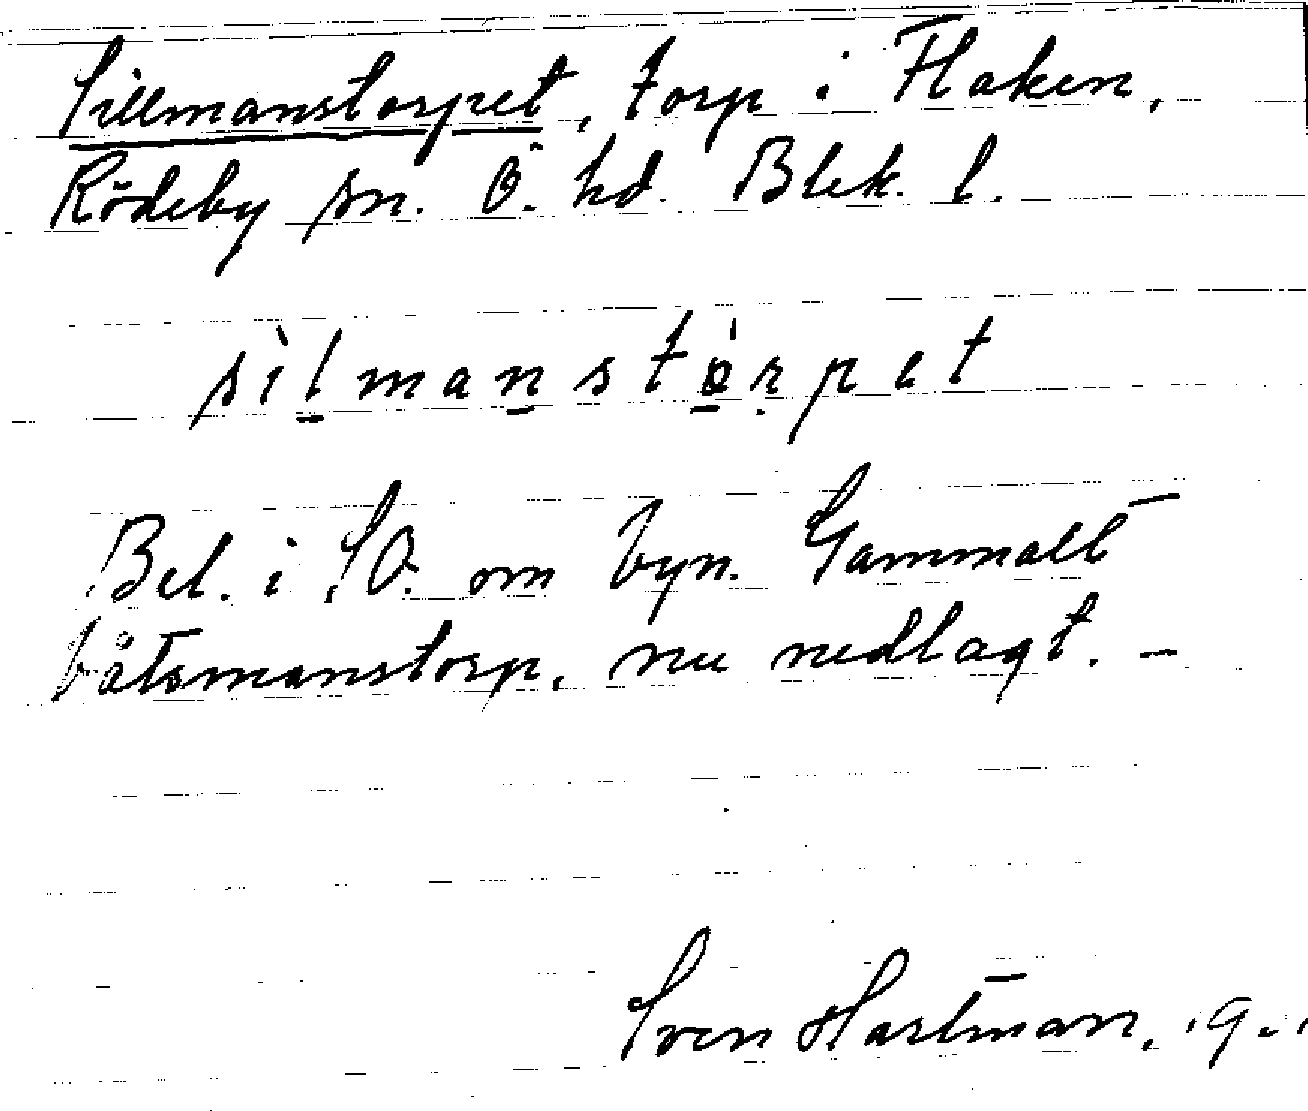 Sillmanstorpet, torp i Flaken,
Rödeby sn. Ö. hd. Blek. l.
sìlmanstòrpet
Bel. i SO. om byn. Gammalt
båtsmanstorp, nu nedlagt. –
Sven Hartman, 19